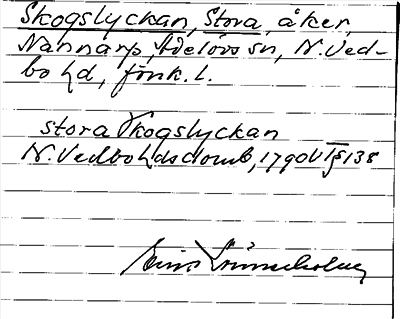 Skogslyckan, Stora, åker,
Nannarp, Adelövs sn, N. Ved-
bo hd, Jönk. l.
stora Skogslyckan
N. Vedbo hds domb, 1790 VT § 138